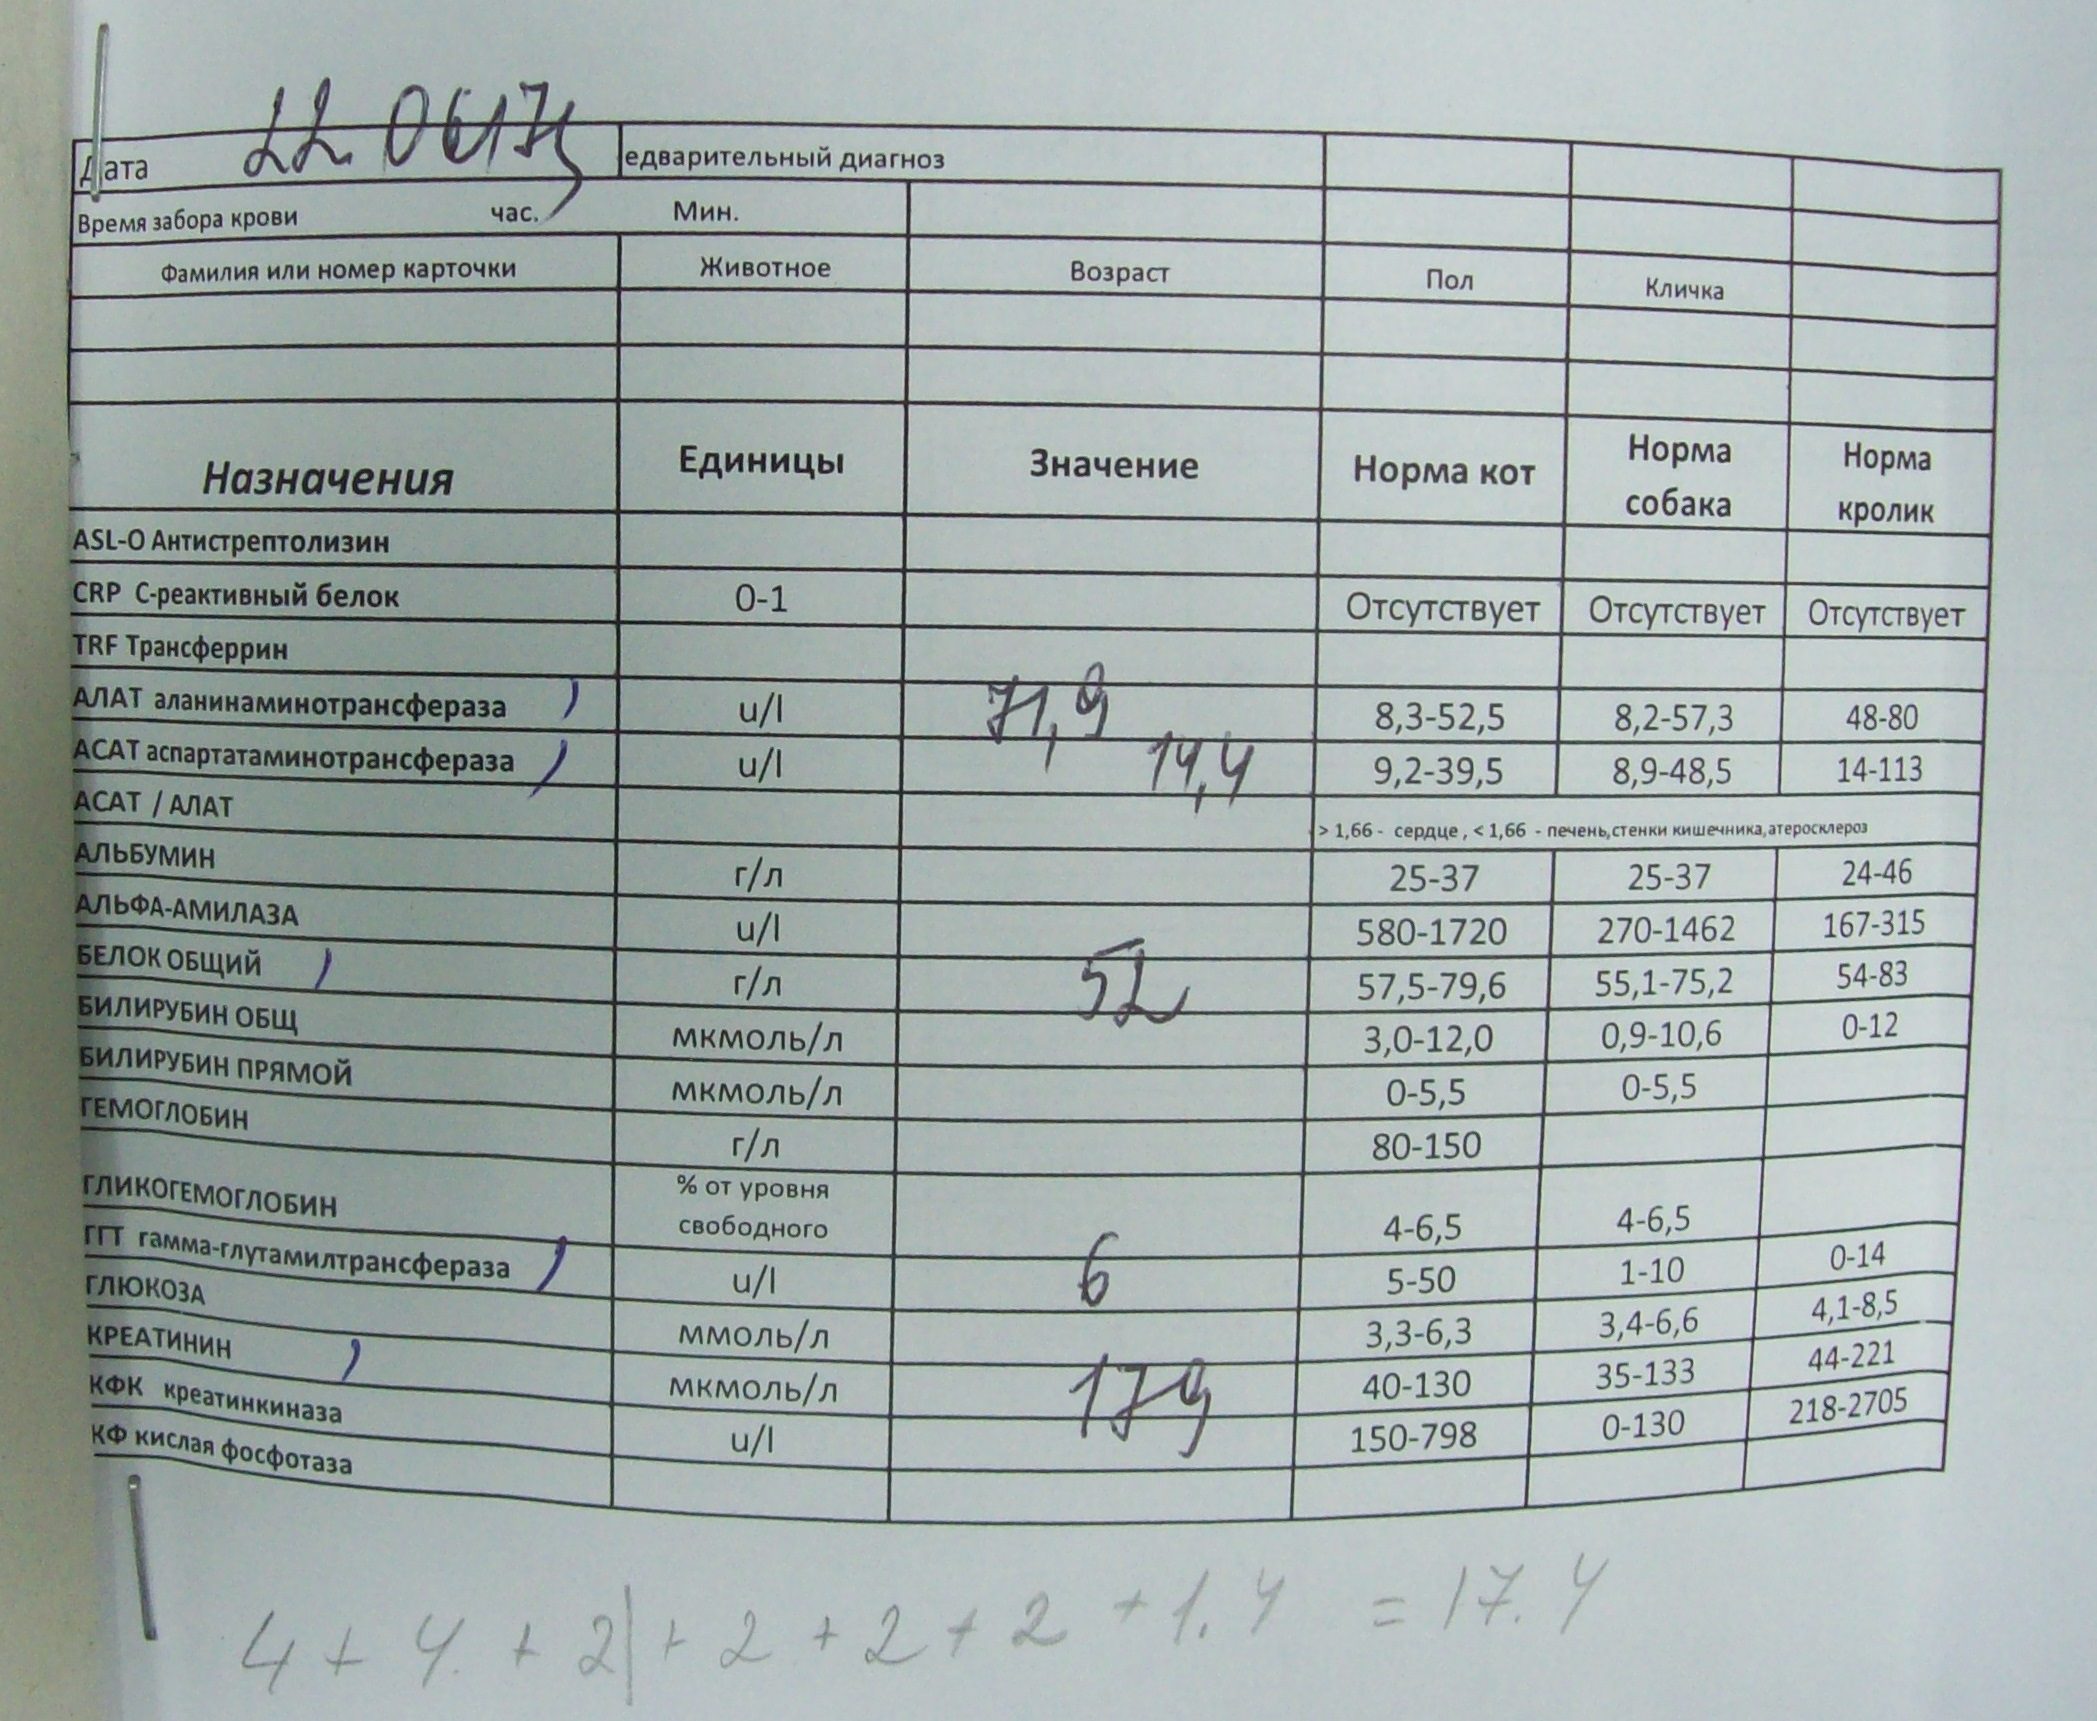 Дата 22.0617г едварительный диагноз
Время забора крови час. Мин.
Фамилия или номер карточки Животное Возраст Пол Кличка
Назначения Единицы Значение Норма кот Норма собака Норма кролик
ASL-O Антистрептолизин
CRP С-реактивный белок 0-1 Отсутствует Отсутствует Отсутствует
TRF Трансферрин
АЛАТ аланинаминотрансфераза u/l 71,9 8,3-52,5 8,2-57,3 48-80
АСАТ аспартатаминотрансфераза u/l 14,4 9,2-39,5 8,9-48,5 14-113
АСАТ / АЛАТ > 1,66 - сердце , < 1,66 - печень,стенки кишечника,атеросклероз
АЛЬБУМИН г/л 25-37 25-37 24-46
АЛЬФА-АМИЛАЗА u/l 580-1720 270-1462 167-315
БЕЛОК ОБЩИЙ г/л 52 57,5-79,6 55,1-75,2 54-83
БИЛИРУБИН ОБЩ мкмоль/л 3,0-12,0 0,9-10,6 0-12
БИЛИРУБИН ПРЯМОЙ мкмоль/л 0-5,5 0-5,5
ГЕМОГЛОБИН г/л 80-150
ГЛИКОГЕМОГЛОБИН % от уровня свободного 4-6,5 4-6,5
ГГТ гамма-глутамилтрансфераза u/l 6 5-50 1-10 0-14
ГЛЮКОЗА ммоль/л 3,3-6,3 3,4-6,6 4,1-8,5
КРЕАТИНИН мкмоль/л 179 40-130 35-133 44-221
КФК креатинкиназа u/l 150-798 0-130 218-2705
КФ кислая фосфотаза
4 + 4 + 2 + 2 + 2 + 2 + 1.4 = 17.4